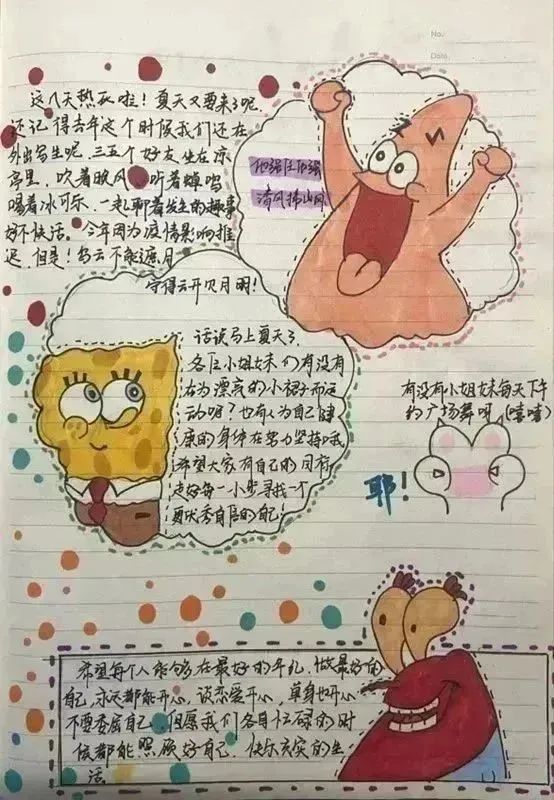 No.
Date.
这几天热死啦！夏天又要来了呢.
还记得去年这个时候我们还在
外出写生呢.三五个好友坐在凉
亭里，吹着晚风、听着蝉鸣
喝着冰可乐、一起聊着发生的趣事
好不快活。今年因为疫情影响推
迟，但是！乌云不能遮月
守得云开见月明！
他强任他强
清风拂山冈
话说马上夏天了
各位小姐妹们有没有
在为漂亮的小裙子而运
动呀？也有人为自己健
康的身体在努力坚持哦
希望大家有自己的目标
走好每一小步寻找一个
夏优秀自信的自己！
有没有小姐妹每天下午
约广场舞啊（嘻嘻）
耶！
希望每个人能够在最好的年礼，做最好的
自己，永远都能开心，谈恋爱开心，单身也开心
不要委屈自己，但愿我们各自忙碌的时
候都能照顾好自己，快乐充实的生
活